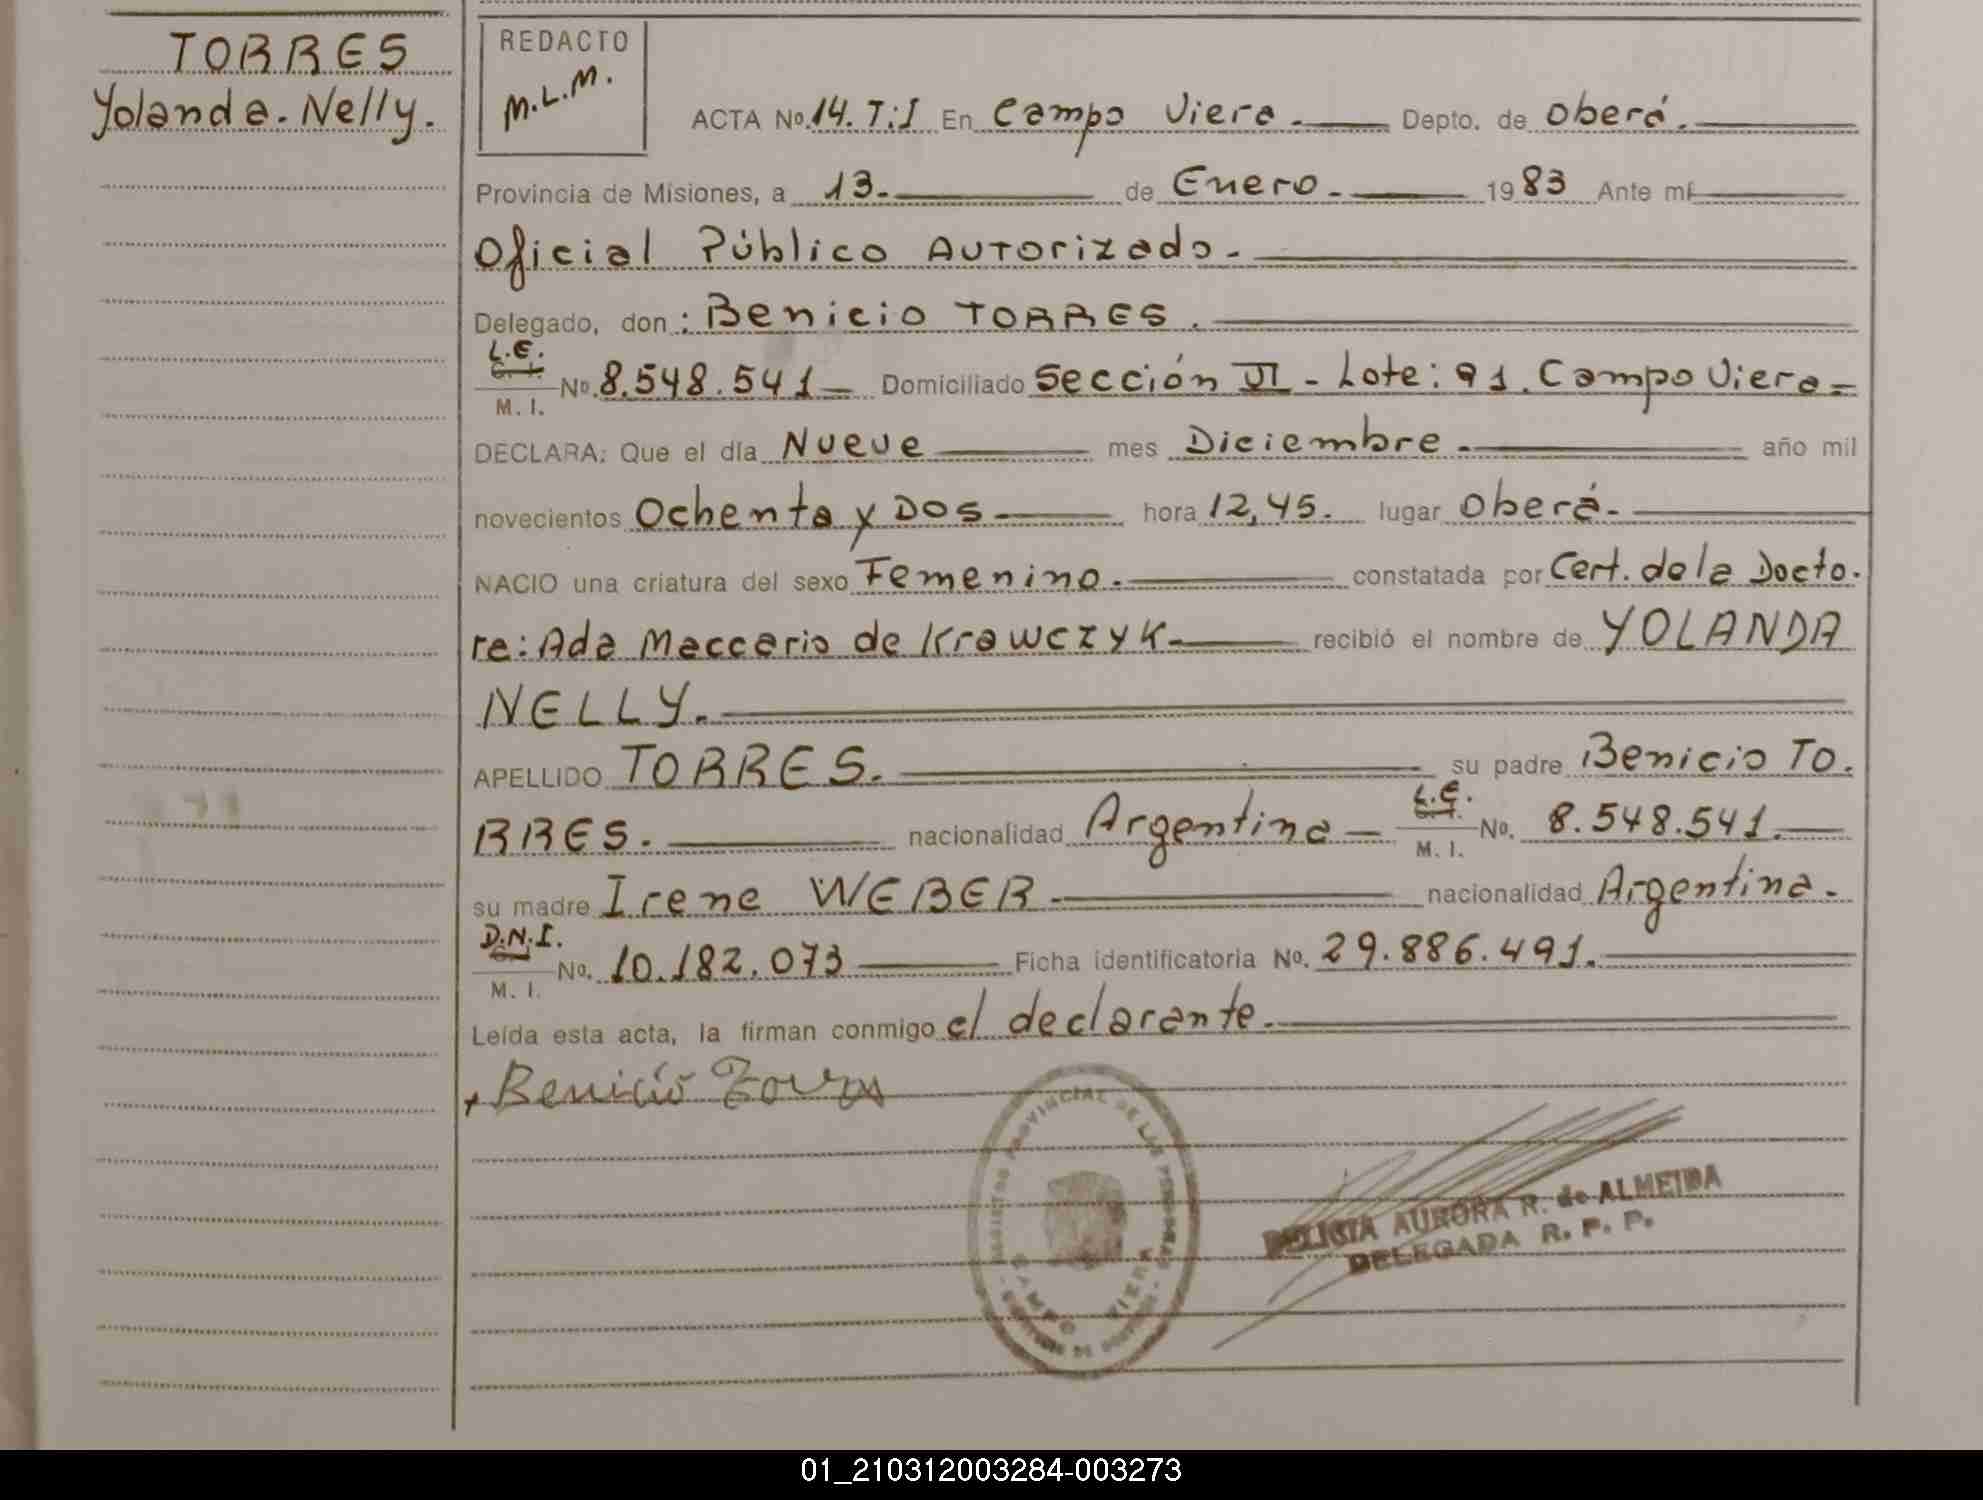 TORRES
Yolanda. Nelly.
REDACTO
M.L.M.
ACTA Nº. 14. T:I En Campo Viera. Depto. de Oberá.
Provincia de Misiones, a 13. de Enero. 1983 Ante mí
Oficial Público Autorizado.
Delegado, don: Benicio TORRES.
L.E.
C. I.
M. I. Nº. 8.548.541 Domiciliado Sección VI - Lote: 91. Campo Viera=
DECLARA: Que el día Nueve mes Diciembre. año mil
novecientos Ochenta y Dos hora 12,45. lugar Oberá.
NACIO una criatura del sexo Femenino. constatada por Cert. de la Docto.
ra: Ada Maccario de Krawczyk recibió el nombre de YOLANDA
NELLY.
APELLIDO TORRES. su padre Benicio TO.
RRES. nacionalidad Argentina L.E. C.I. M. I. Nº. 8.548.541.
su madre Irene WEBER. nacionalidad Argentina.
D.N.I.
M. I. Nº. 10.182.073 Ficha identificatoria Nº. 29.886.491.
Leída esta acta, la firman conmigo el declarante.
Benicio Torres
REGISTRO PROVINCIAL DE LAS PERSONAS
CAMPO VIERA
DELICIA AURORA R. de ALMEIDA
DELEGADA R. P. P.
01_210312003284-003273